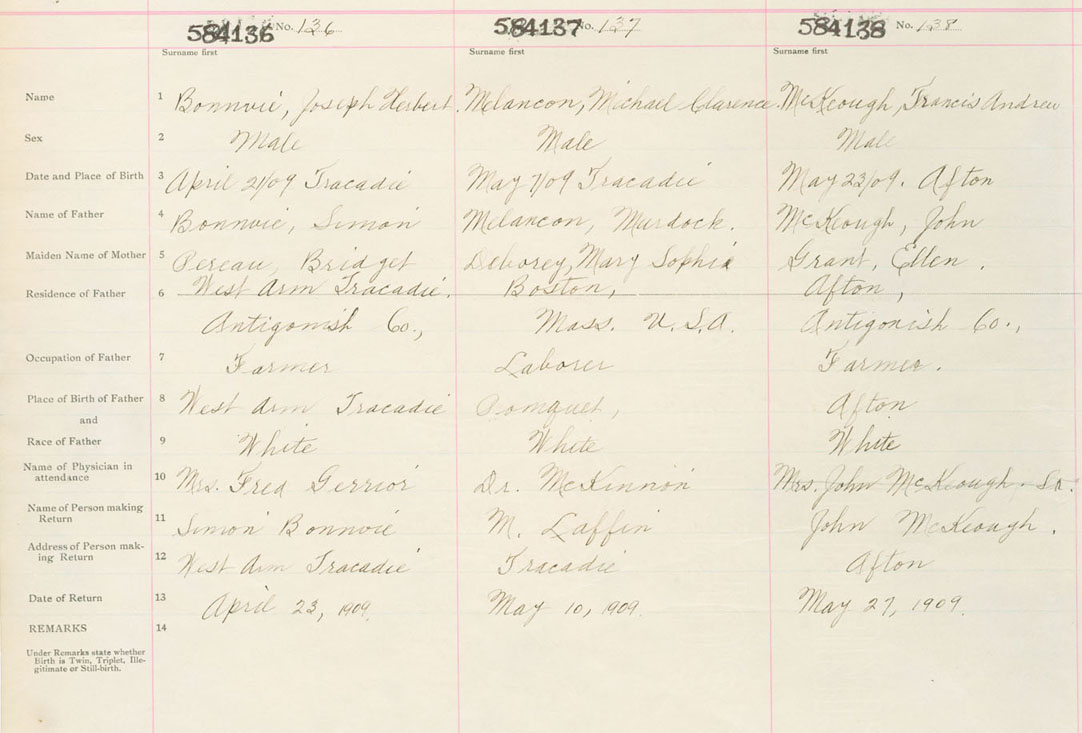 584136 No. 136 584137 No. 137 584138 No. 138
Surname first Surname first Surname first
Name 1 Bonnvie, Joseph Herbert. Melancon, Michael Clarence. McKeough, Francis Andrew
Sex 2 Male Male Male
Date and Place of Birth 3 April 21/09 Tracadie May 7/09 Tracadie May 23/09. Afton
Name of Father 4 Bonnvie, Simon Melancon, Murdock. McKeough, John
Maiden Name of Mother 5 Pereau, Bridget Deborey, Mary Sophia Grant, Ellen.
Residence of Father 6 West Arm Tracadie. Boston, Afton,
Antigonish Co., Mass. U.S.A. Antigonish Co.,
Occupation of Father 7 Farmer Laborer Farmer.
Place of Birth of Father 8 West Arm Tracadie Pomquet, Afton
and
Race of Father 9 White White White
Name of Physician in
attendance 10 Mrs. Fred Gerrior Dr. McKinnon Mrs. John McKeough. Sr.
Name of Person making
Return 11 Simon Bonnvie M. Laffin John McKeough.
Address of Person mak-
ing Return 12 West Arm Tracadie Tracadie Afton
Date of Return 13 April 23, 1909. May 10, 1909. May 27, 1909.
REMARKS 14
Under Remarks state whether
Birth is Twin, Triplet, Ille-
gitimate or Still-birth.